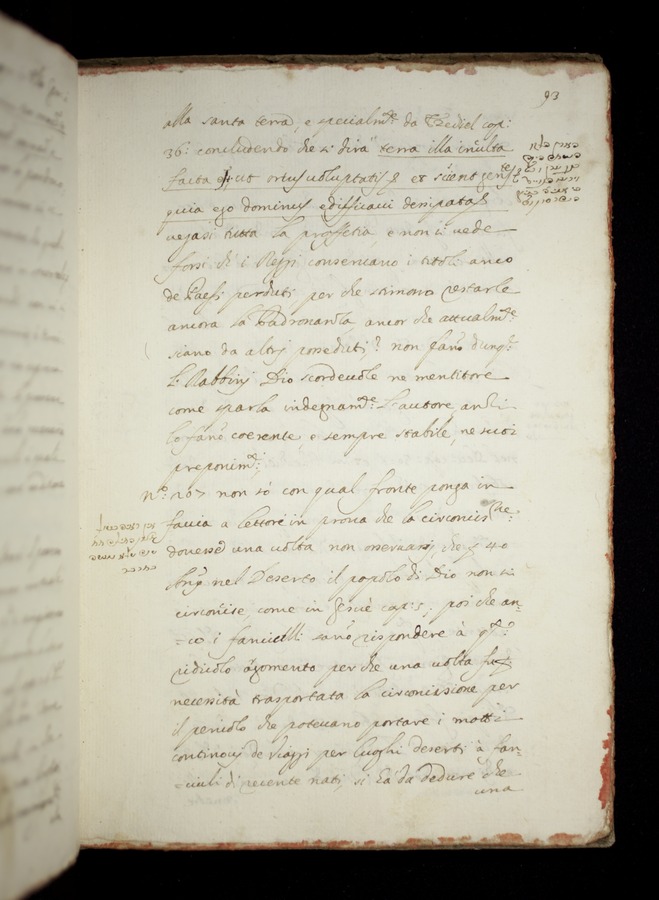 93
alla santa terra, e specialm.te da Jechiel cap:
36: concludendo che si dirà terra illa inculta
facta est ut ortus voluptatis & et scient gentes
quia ego dominus edifficavi dissipatas
vegasi tutta la proffetia, e non si vede
forsi che i Reggi conservano i titoli anco
de Paesi perduti per che stimono restarle
ancora la Padronanza ancor che attualm.te
siano da altri posseduti? non fano dunq.e
li Rabbini Dio scordevole ne mentitore
come sparla indegnam.te l'autore, anzi
lo fano coerente e sempre stabile ne suoi
preponim.ti
N.o 207 non sò con qual fronte ponga in
faccia a lettori in prova che la circoncis.ne
dovesse una volta non osservarsi che 40
Anni nel Deserto il popolo di Dio non si
circoncise, come in Josue cap: 5; poi che an-
=co i fanciulli sano rispondere à q.to
ridicolo argomento per che una volta fu p
necessità trasportata la circoncissione per
il pericolo che potevano portare i motti
continovi de viaggi per luoghi deserti à fan-
=ciulli di recente nati, si ha da dedure che
una